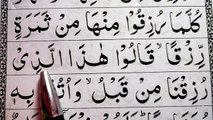 كُلَّمَا رُزِقُوْا مِنْهَا مِنْ ثَمَرَةٍ
رِّزْقًا ۙ قَالُوْا هٰذَا الَّذِىْ
رُزِقْنَا مِنْ قَبْلُ ۙ وَاُتُوْا بِهٖ